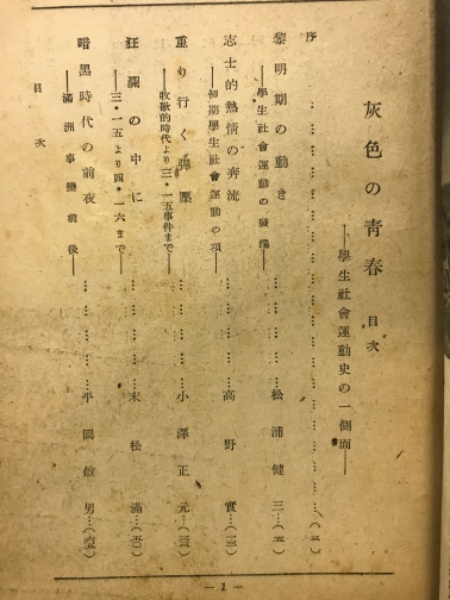 灰色の青春 目次
――學生社會運動史の一側面――
序………………………(三)
黎明期の動き…………松浦健三…(五)
――學生社會運動の發端――
志士的熱情の奔流…………高野實…(三)
――初期學生社會運動の項――
重り行く彈壓…………小澤正元…(三)
――牧歌的時代より三・一五事件まで――
狂瀾の中に…………末松滿…(五〇)
――三・一五より四・一六まで――
暗黑時代の前夜…………平岡敏男…(六五)
――滿洲事變前後――
目次
― 1 ―